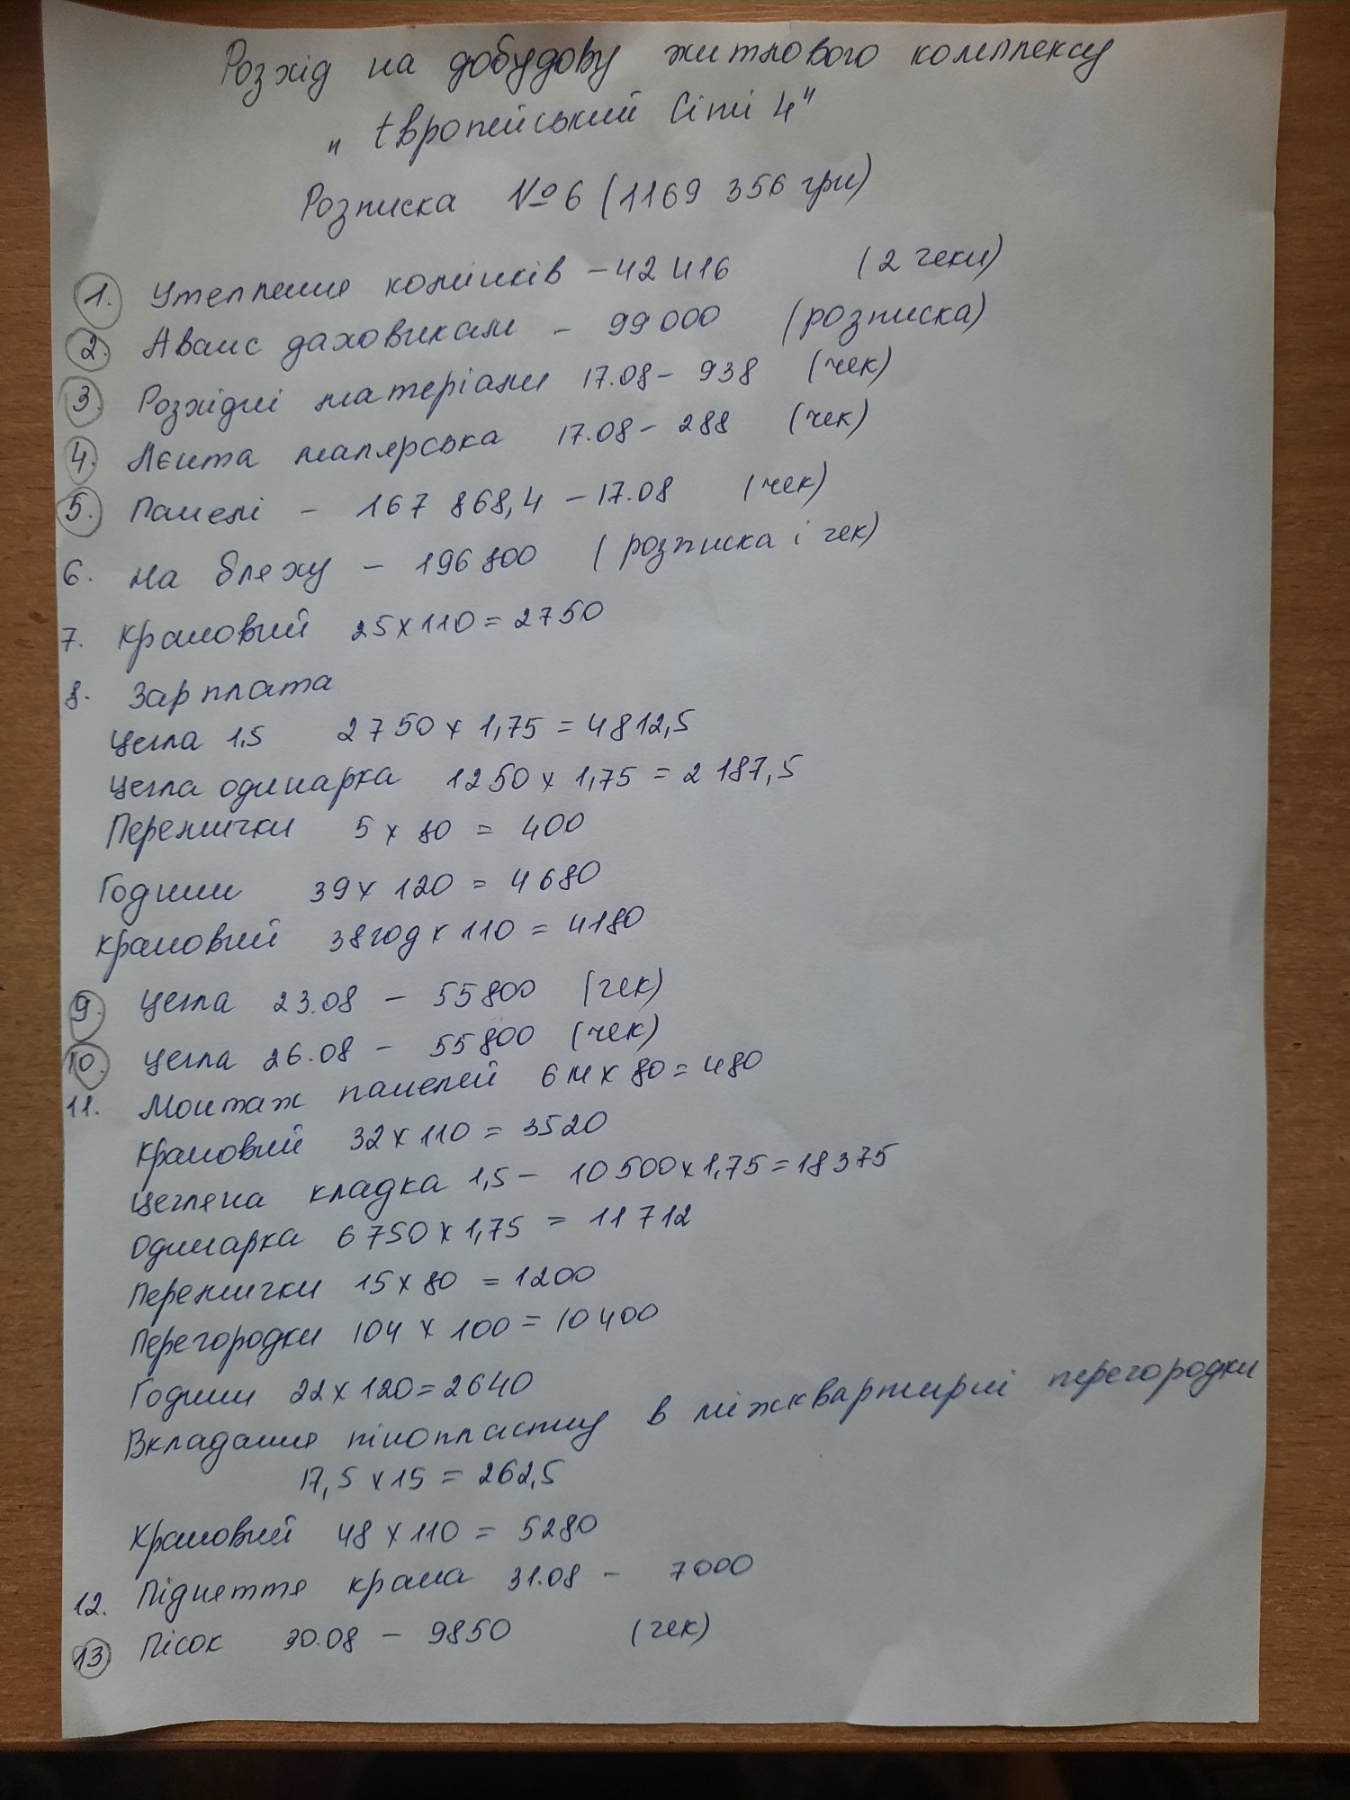 Розхід на добудову житлового комплексу
„Європейський Сіті 4"
Розписка №6 (1169 356 грн)
1. Утеплення комінків - 42 416 (2 чеки)
2. Аванс даховикам - 99 000 (розписка)
3 Розхідні матеріали 17.08 - 938 (чек)
4. Лєнта малярська 17.08 - 288 (чек)
5. Панелі - 167 868,4 - 17.08 (чек)
6. На бляху - 196 800 (розписка і чек)
7. Крановий 25 x 110 = 2750
8. Зарплата
Цегла 1,5 2750 x 1,75 = 4812,5
Цегла одинарка 1250 x 1,75 = 2187,5
Перемички 5 x 80 = 400
Години 39 x 120 = 4680
Крановий 38 год x 110 = 4180
9. Цегла 23.08 - 55 800 (чек)
10. Цегла 26.08 - 55 800 (чек)
11. Монтаж панелей 6 м x 80 = 480
Крановий 32 x 110 = 3520
Цегляна кладка 1,5 - 10 500 x 1,75 = 18 375
Одинарка 6 750 x 1,75 = 11 712
Перемички 15 x 80 = 1200
Перегородки 104 x 100 = 10 400
Години 22 x 120 = 2640
Вкладання пінопласту в міжквартирні перегородки
17,5 x 15 = 262,5
Крановий 48 x 110 = 5280
12. Підняття крана 31.08 - 7000
13 Пісок 30.08 - 9850 (чек)